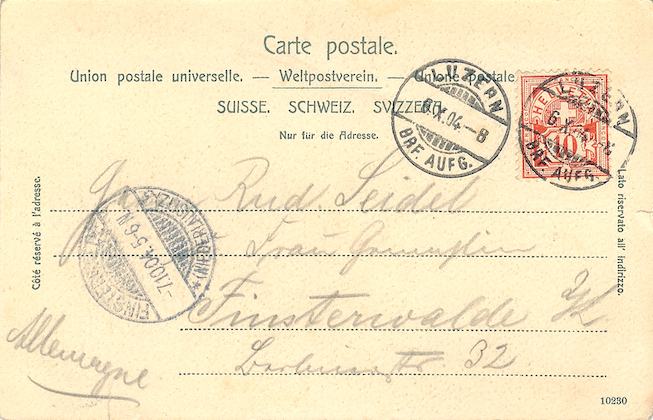 Carte postale.
Union postale universelle. — Weltpostverein. — Unione postale
SUISSE. SCHWEIZ. SVIZZERA.
Nur für die Adresse.
LUZERN
6.X.04.-8
BRF. AUFG.
HELVETIA
10
LUZERN
6.X.
BRF. AUFG.
Côté réservé à l'adresse.
Lato riservato all' indirizzo.
Rud. Seidel
Frau
Finsterwalde N/L
32
Allemagne
FINSTERWALDE
-7.10.04. 5-6 N.
(NIEDERLAUSITZ)
10230